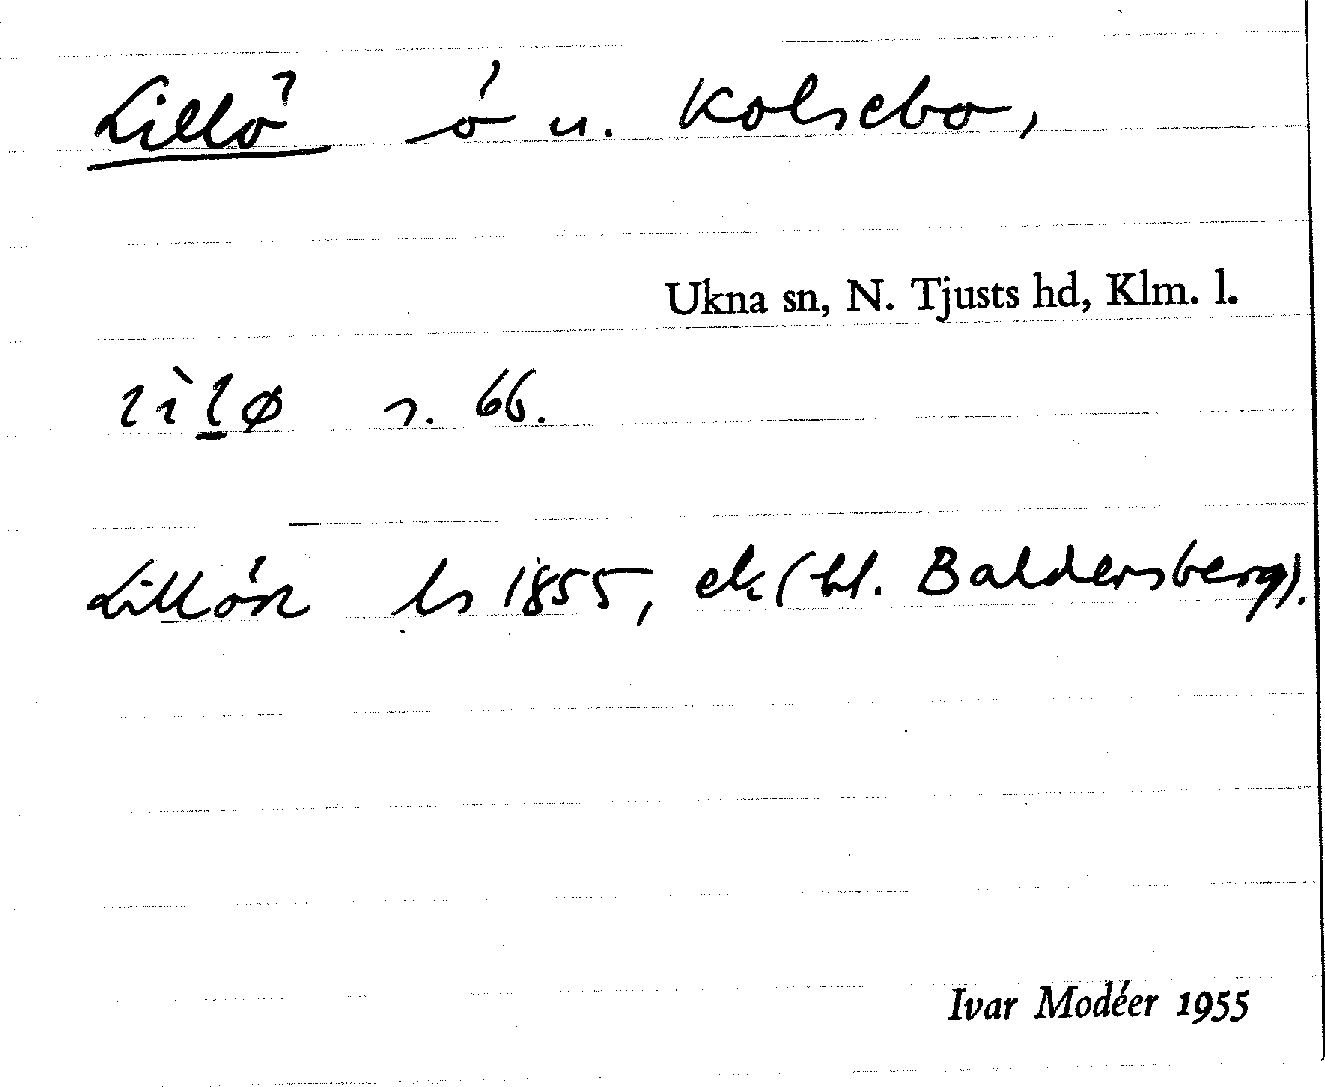 Lillö ö u. Kolsebo,
Ukna sn, N. Tjusts hd, Klm. l.
lìlø s. 66.
Lillön ls 1855, ek (bl. Baldersberg).
Ivar Modéer 1955